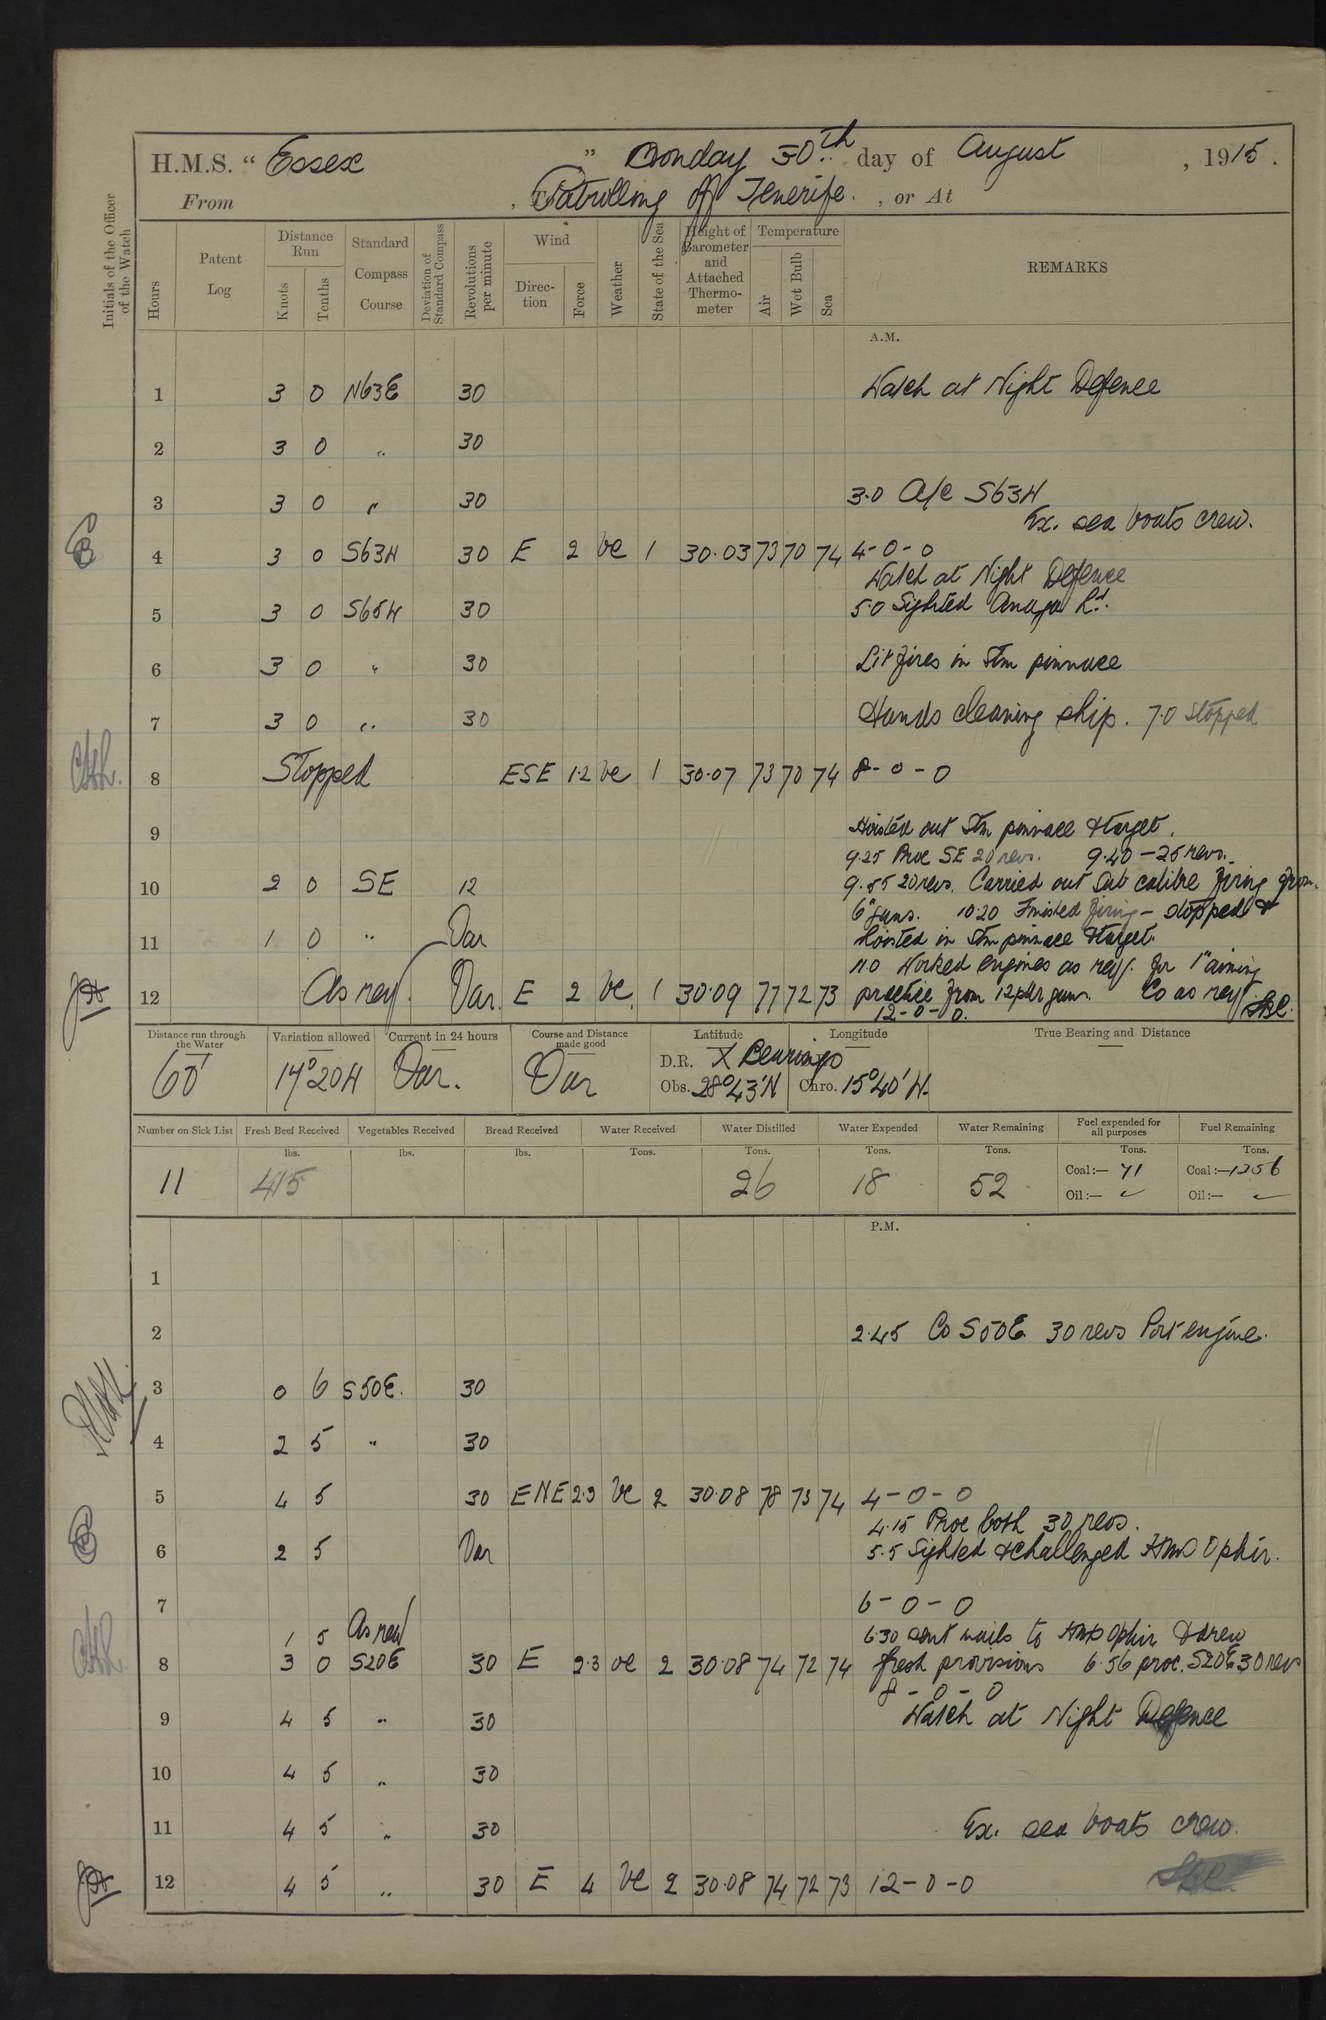 H.M.S. " Essex " Monday 30th day of August , 1915 .
From , To Patrolling off Tenerife. , or At
Initials of the Officer of the Watch
Hours
Patent Log
Distance Run
Knots
Tenths
Standard Compass Course
Deviation of Standard Compass
Revolutions per minute
Wind
Direction
Force
Weather
State of the Sea
Height of Barometer and Attached Thermometer
Temperature
Air
Wet Bulb
Sea
REMARKS
A.M.
1 3 0 N63E 30 Watch at Night Defence
2 3 0 " 30
3 3 0 " 30 3.0 A/c S63W
Ex. sea boats crew.
4 3 0 S63W 30 E 2 bc 1 30.03 73 70 74 4-0-0
Watch at Night Defence
5 3 0 S65W 30 5.0 Sighted Anaga Pt.
6 3 0 " 30 Lit fires in Stm pinnace
7 3 0 " 30 Hands cleaning ship. 7.0 Stopped
8 Stopped ESE 1.2 bc 1 30.07 73 70 74 8-0-0
9 Hoisted out Stm pinnace & target.
9.25 Proc SE 20 revs. 9.40 - 25 revs.
10 2 0 SE 12 9.55 20 revs. Carried out Sub calibre firing from
6" guns. 10.20 Finished firing - stopped &
11 1 0 " Var hoisted in Stm pinnace & target.
11.0 Worked engines as req. for 1" aiming
12 As req. Var. E 2 bc 1 30.09 77 72 73 practice from 12pdr guns. Co as req.
12-0-0.
Distance run through the Water
Variation allowed
Current in 24 hours
Course and Distance made good
Latitude
Longitude
True Bearing and Distance
60' 17°20W Var. Var D.R. X Bearings
Obs. 28°43'N Chro. 15°40'W.
Number on Sick List
Fresh Beef Received
Vegetables Received
Bread Received
Water Received
Water Distilled
Water Expended
Water Remaining
Fuel expended for all purposes
Fuel Remaining
lbs. lbs. lbs. Tons. Tons. Tons. Tons. Tons. Tons.
11 415 26 18 52 Coal:— 71 Coal:—1256
Oil:— Oil:—
P.M.
1
2 2.45 Co S50E 30 revs Port engine.
3 0 6 S50E. 30
4 2 5 " 30
5 4 5 30 ENE 2.3 bc 2 30.08 78 73 74 4-0-0
4.15 Proc both 30 revs.
6 2 5 Var 5.5 Sighted & challenged HMS Ophir.
7 6-0-0
1 5 As req 6.30 sent mails to HMS Ophir & drew
8 3 0 S20E 30 E 2.3 bc 2 30.08 74 72 74 fresh provisions 6.56 proc. S20E 30 revs
8-0-0
9 4 5 " 30 Watch at Night Defence
10 4 5 " 30
11 4 5 " 30 Ex. sea boats crew.
12 4 5 " 30 E 4 bc 2 30.08 74 72 73 12-0-0